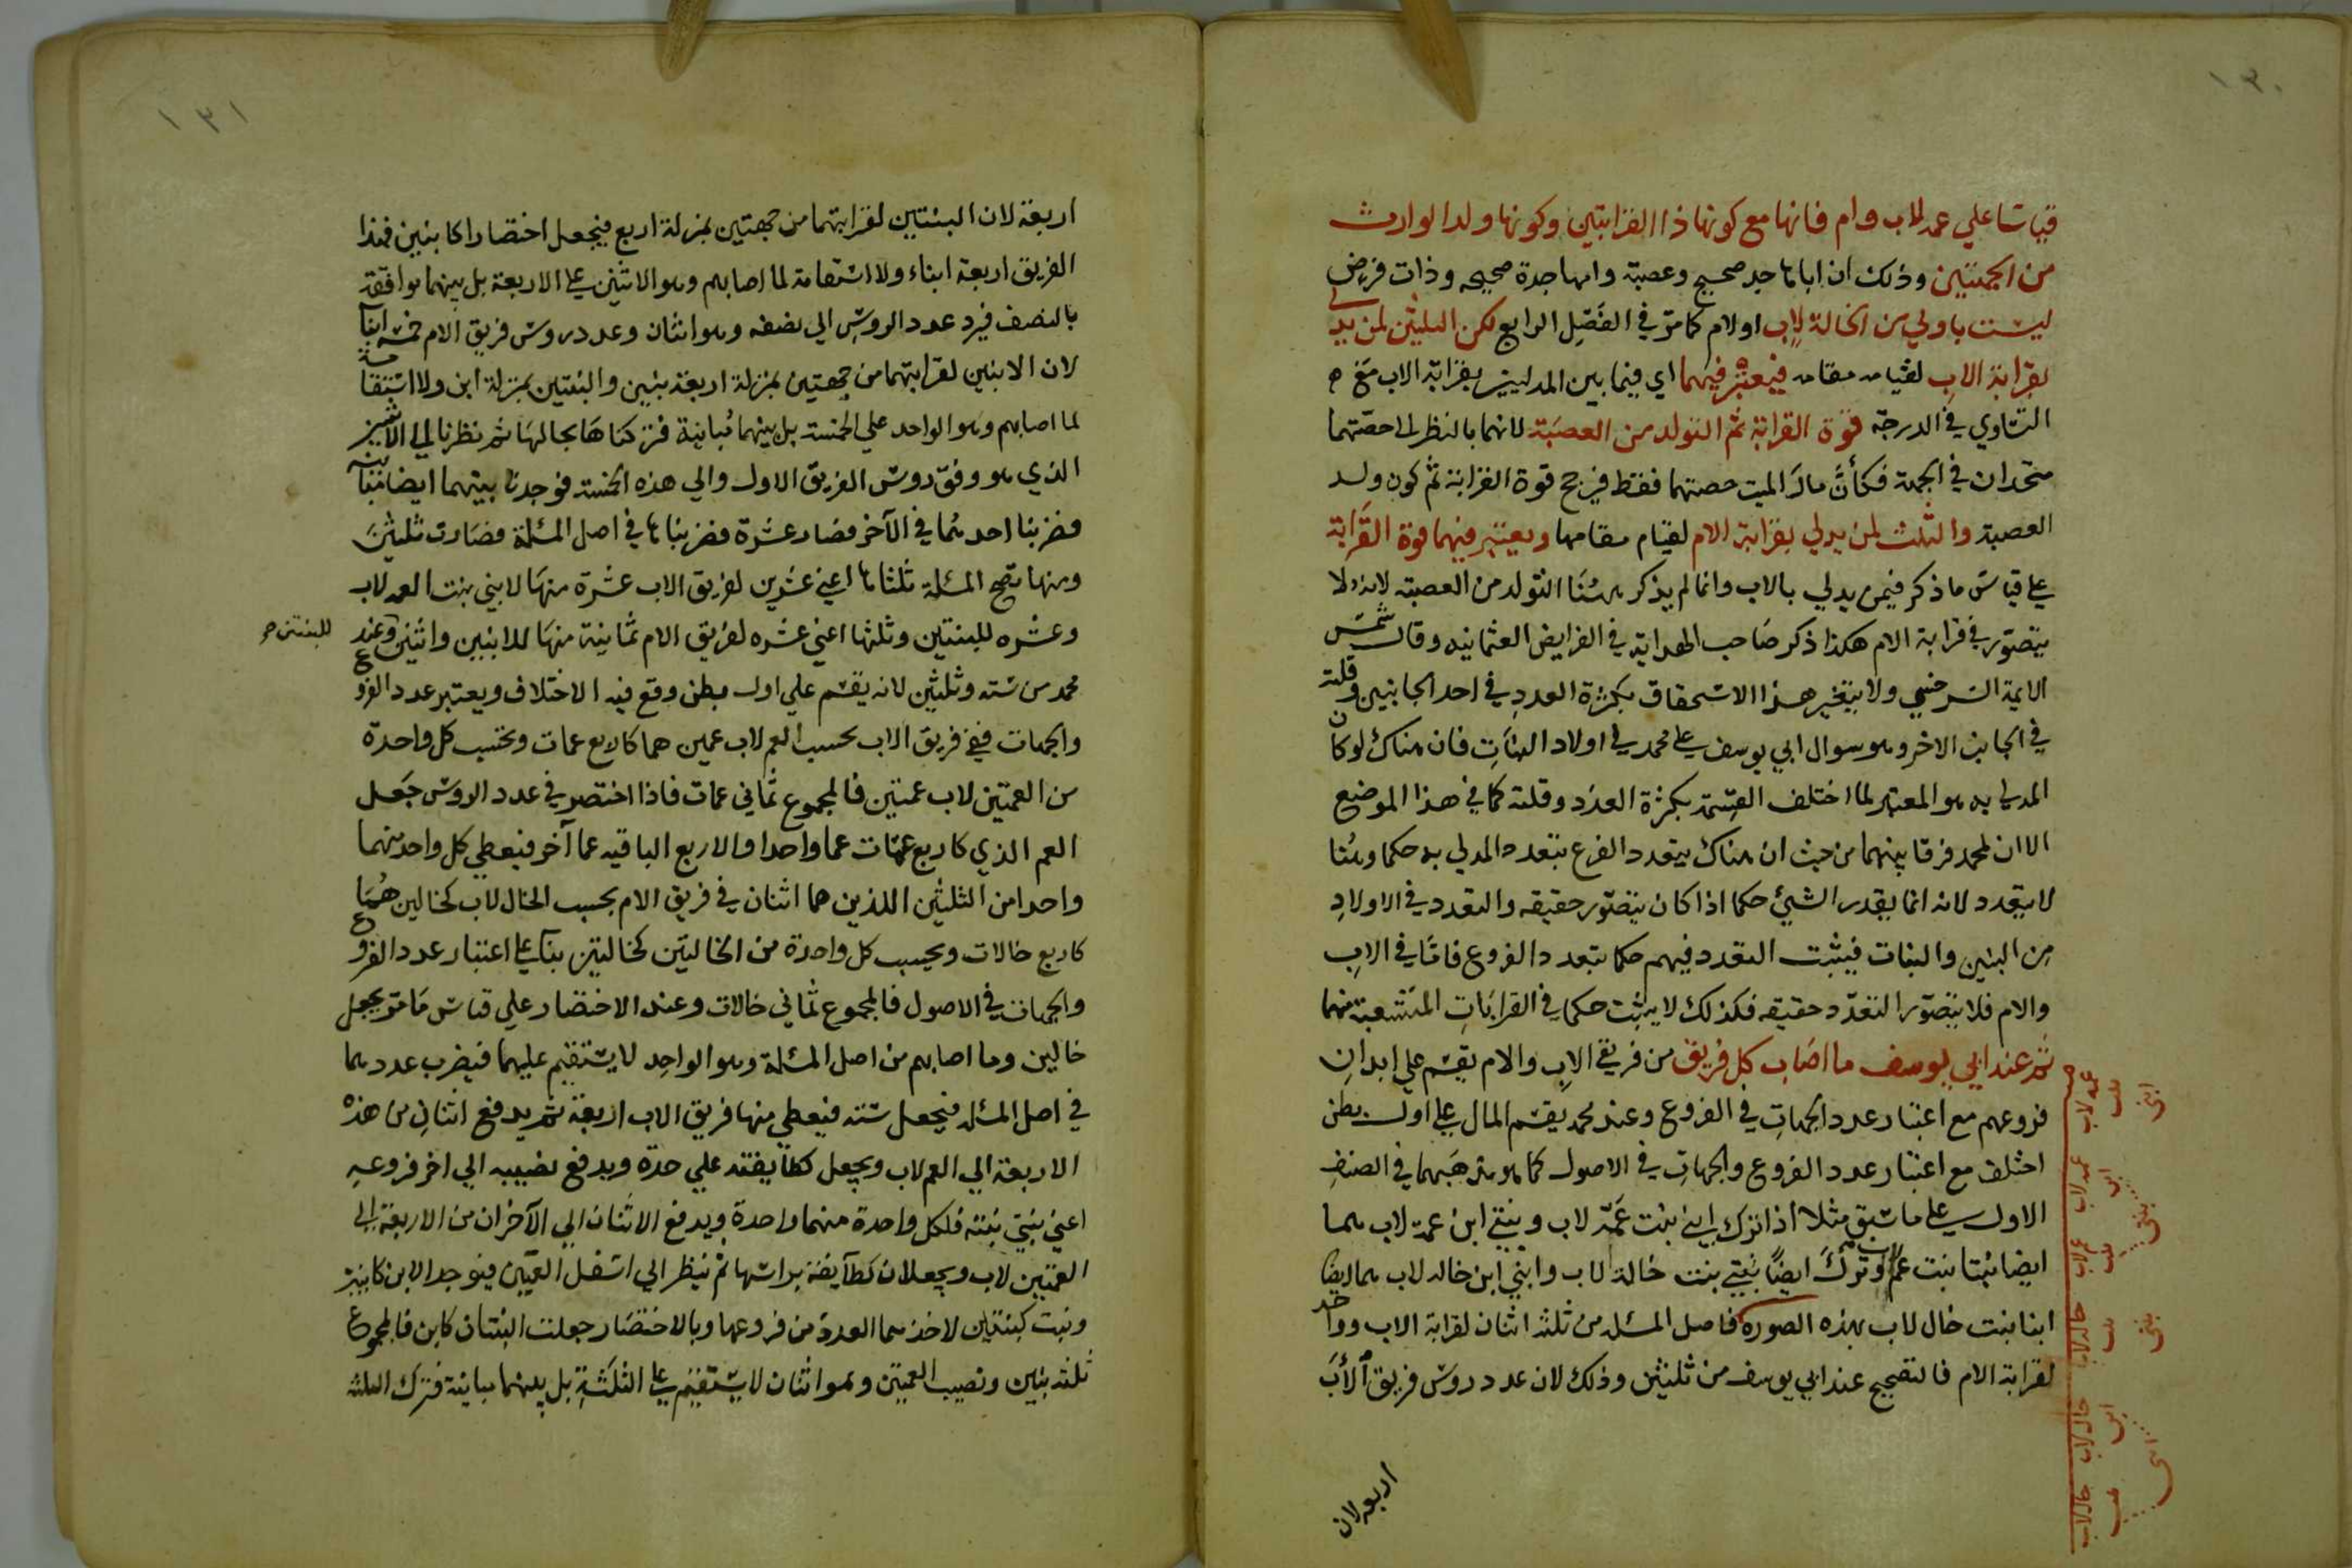 ١٣٠
قياسا علي عمة لاب وام فانها مع كونها ذا القرابتين وكونها ولد الوارث
من الجهتين وذلك ان اباها جد صحيح وعصبة وامها جدة صحيحه وذات فرض
ليست باولي من الخالة لاب او لام كما مر في الفصل الرابع لكن الثلثين لمن يدلي
بقرابة الاب لقيامه مقامه فيعتبر فيهما اي فيما بين المدليين بقرابة الاب مع
التساوي في الدرجة قوة القرابة ثم التولد من العصبة لانهما بالنظر الى حصتهما
متحدان في الجهة فكأن مال الميت حصتهما فقط فيرجح قوة القرابة ثم كون ولد
العصبة والثلث لمن يدلي بقرابة الام لقيام مقامها ويعتبر فيهما قوة القرابة
علي قياس ما ذكر فيمن يدلي بالاب وانما لم يذكر هنا التولد من العصبة لانه لا
يتصور في قرابة الام هكذا ذكر صاحب الهداية في الفرايض العثمانيه وقال شمس
الايمة السرخسي ولا يتغير هذا الاستحقاق بكثرة العدد في احد الجانبين وقلته
في الجانب الاخر وهو سوال ابي يوسف علي محمد في اولاد البنات فان هناك لو كان
المدلي به هو المعتبر لما اختلف القسمة بكثرة العدد وقلته كما في هذا الموضع
الا ان لمحمد فرقا بينهما من حيث ان هناك يتعدد الفرع بتعدد المدلي به حكما وهنا
لا يتعدد لانه انما يقدر الشيئ حكما اذا كان يتصور حقيقه والتعدد في الاولاد
من البنين والبنات فيثبت التعدد فيهم حكما بتعدد الفروع فاما في الاب
والام فلا يتصور التعدد حقيقه فكذلك لا يثبت حكما في القرابات المتشعبة منهما
ثم عند ابي يوسف ما اصاب كل فريق من فريقي الاب والام يقسم علي ابدان
فروعهم مع اعتبار عدد الجهات في الفروع وعند محمد يقسم المال علي اول بطن
اختلف مع اعتبار عدد الفروع والجهات في الاصول كما هو مذهبهما في الصنف
الاول علي ما سبق مثلا اذا ترك ابني بنت عمة لاب وبنتي ابن عمة لاب هما
ايضا بنتا بنت عم لاب وترك ايضا بنتي بنت خالة لاب وابني ابن خالة لاب هما ايضا
ابنا بنت خال لاب بهذه الصورة فاصل المسئله من ثلثة اثنان لقرابة الاب وواحد
لقرابة الام فالتصحيح عند ابي يوسف من ثلثين وذلك لان عدد روس فريق الاب
اربعه لان
١٣١
اربعة لان البنتين لقرابتهما من جهتين بمنزلة اربع فيجعل اختصارا كابنين فهذا
الفريق اربعة ابناء ولا استقامة لما اصابهم وهو الاثنين علي الاربعة بل بينهما موافقة
بالنصف فيرد عدد الروس الي نصفه وهو اثنان وعدد روس فريق الام خمسة ابنا
لان الابنين لقرابتهما من جهتين بمنزلة اربعة بنين والبنتين بمنزلة ابن ولا استقامة
لما اصابهم وهو الواحد علي الخمسة بل بينهما مباينة فتركناها بحالها ثم نظرنا الي الاثنين
الذي هو وفق روس الفريق الاول والي هذه الخمسة فوجدنا بينهما ايضا مباينة
فضربنا احدهما في الآخر فصار عشرة فضربناها في اصل المسئلة فصارت ثلثين
ومنها تصح المسئلة ثلثاها اعني عشرين لفريق الاب عشرة منها لابني بنت العمة لاب
وعشره للبنتين وثلثها اعني عشره لفريق الام ثمانية منها للابنين واثنين للبنتين وعند
محمد من ستة وثلثين لانه يقسم علي اول بطن وقع فيه الاختلاف ويعتبر عدد الفروع
والجهات ففي فريق الاب يحسب العم لاب عمين هما كاربع عمات وتحسب كل واحدة
من العمتين لاب عمتين فالمجموع ثماني عمات فاذا اختصر في عدد الروس جعل
العم الذي كاربع عمات عما واحدا والاربع الباقيه عما آخر فيعطي كل واحد منهما
واحدا من الثلثين اللذين هما اثنان في فريق الام يحسب الخال لاب كخالين هما
كاربع خالات ويحسب كل واحدة من الخالتين كخالتين بناء علي اعتبار عدد الفروع
والجهات في الاصول فالمجموع ثماني خالات وعند الاختصار علي قياس ما مر يجعل
خالين وما اصابهم من اصل المسئلة وهو الواحد لا يستقيم عليهما فيضرب عددهما
في اصل المسئله فيجعل ستة فيعطي منها فريق الاب اربعة ثم يدفع اثنان من هذه
الاربعة الي العم لاب ويجعل كطايفة علي حدة ويدفع نصيبه الي اخر فروعه
اعني بنتي بنته فلكل واحدة منهما واحدة ويدفع الاثنان الآخران من الاربعة الي
العمتين لاب ويجعلان كطآيفة براسها ثم ينظر الي اسفل العمتين فيوجد الابن كابنين
وبنت كبنتين لاخذهما العدد من فروعهما وبالاختصار جعلت البنتان كابن فالمجموع
ثلثة بنين ونصيب العمتين وهو اثنان لا يستقيم علي الثلثة بل بينهما مباينة فترك الثلثه